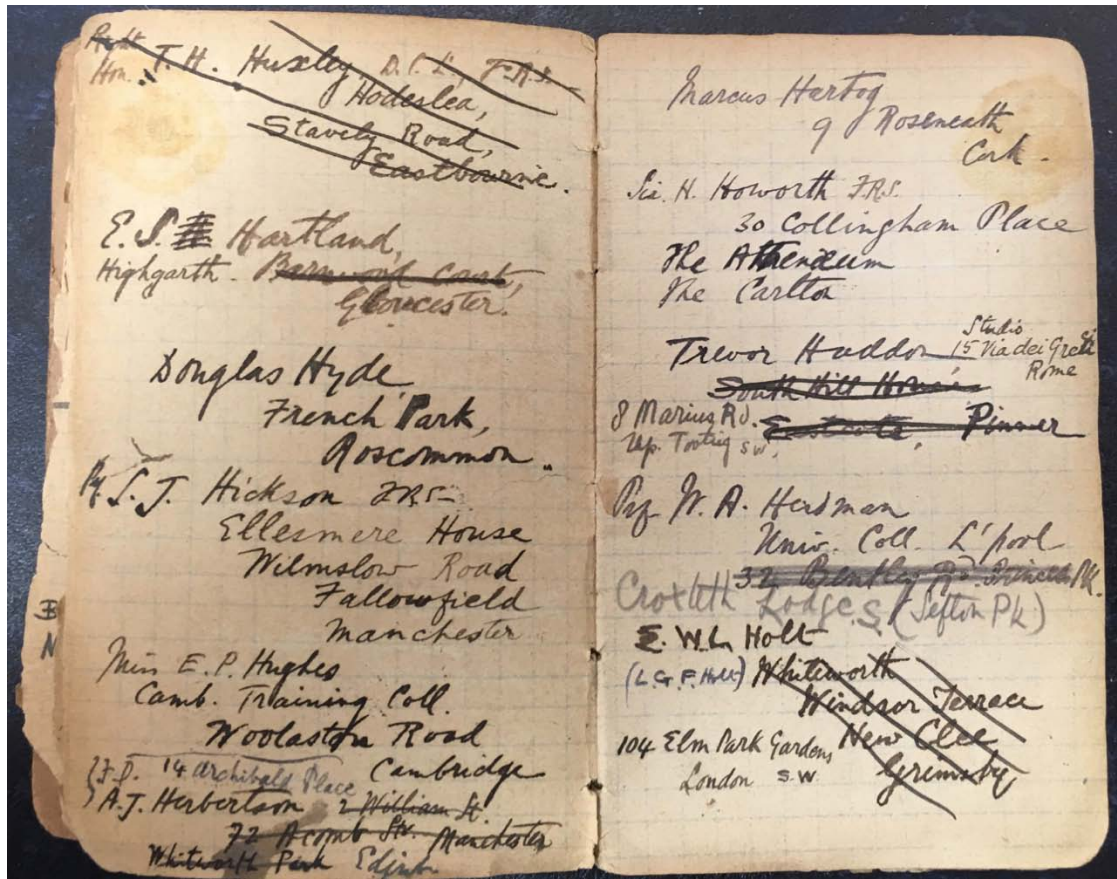 Rght
Hon. T. H. Huxley, D.C.L. F.R.S.
Hodeslea,
Stavely Road,
Eastbourne.
E. S. Hartland,
Highgarth. Barnwood Court,
Gloucester.
Douglas Hyde
French Park,
Roscommon.
Pf. S. J. Hickson FRS
Ellesmere House
Wilmslow Road
Fallowfield
Manchester
Miss E. P. Hughes
Camb. Training Coll.
Woolaston Road
Cambridge
14 Archibald Place
A. J. Herbertson 2 William St.
72 Acomb St. Manchester
Whitworth Park Edinb
E
N
Marcus Hartog
9 Roseneath
Cork.
Sir. H. Howorth F.R.S.
30 Collingham Place
The Athenæum
The Carlton
Trevor Haddon Studio
15 Via dei Greci
Rome
South Hill House
8 Marius Rd. Eastcote, Pinner
Up. Tooting S.W.
Prf W. A. Herdman
Univ. Coll. L'pool
32 Bentley Rd. Princes Pk.
Croxteth Lodge S. (Sefton Pk)
E. W. L. Holt
(L. G. F. Holt) Whiteworth
Windsor Terrace
104 Elm Park Gardens New Clee
London S.W. Grimsby